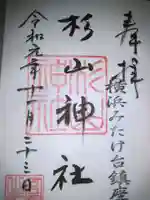 奉拝
横浜みたけ台鎮座
杉山神社
令和元年十一月二十三日